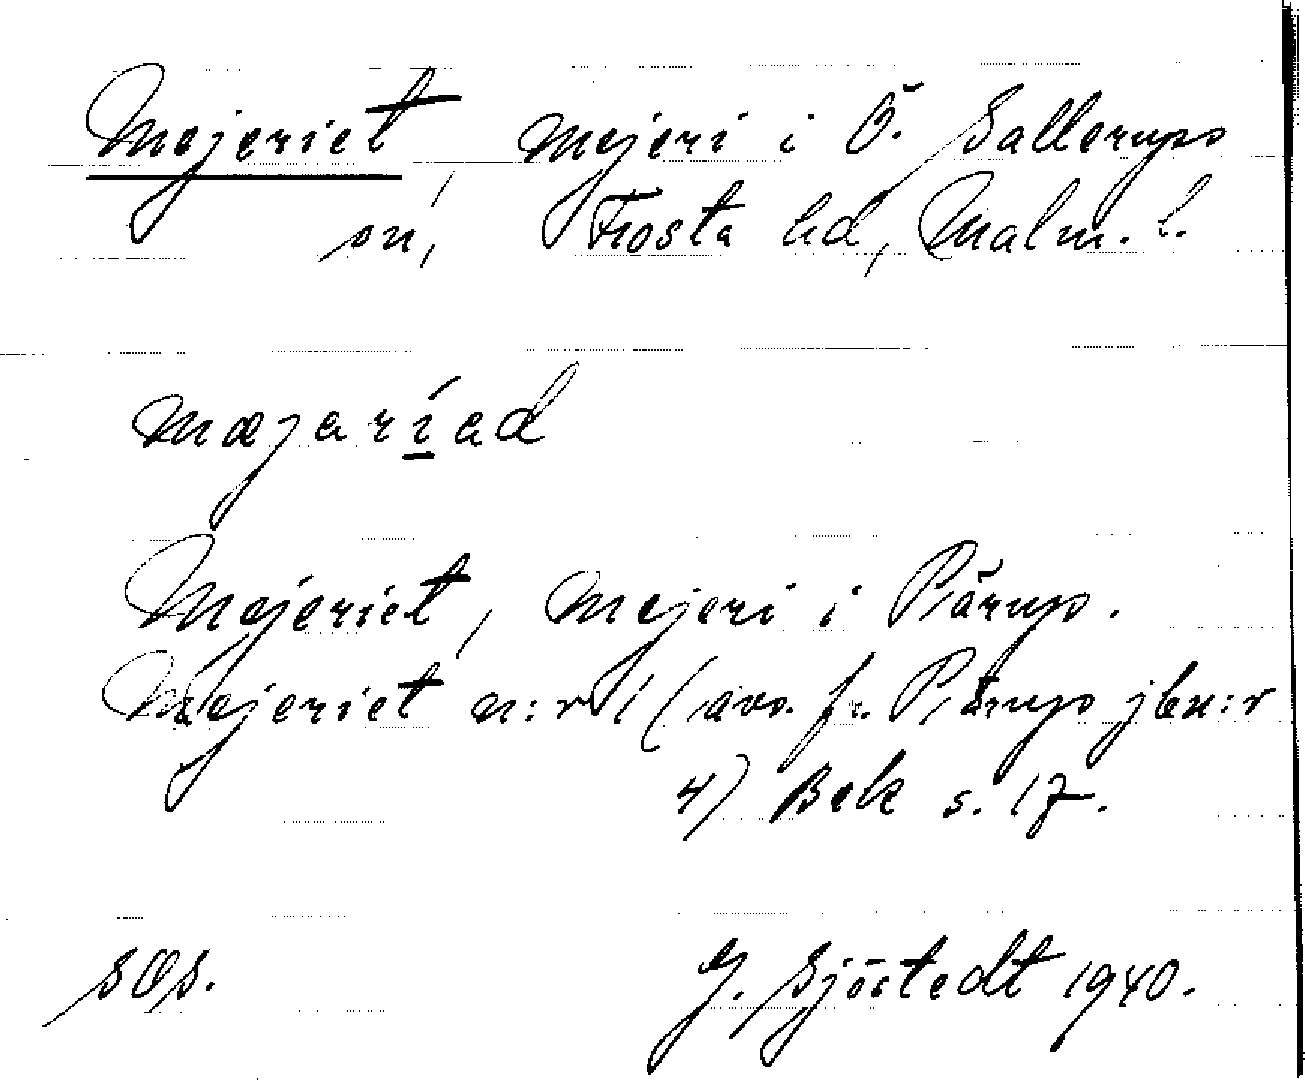 Mejeriet, mejeri i Ö. Sallerups
sn, Frosta hd, Malm. l.
mæjaríad
Mejeriet, mejeri i Pärup.
Mejeriet n:r 1 (avs. fr. Pärup jbn:r
4) Bek s. 17.
G. Sjöstedt 1940.